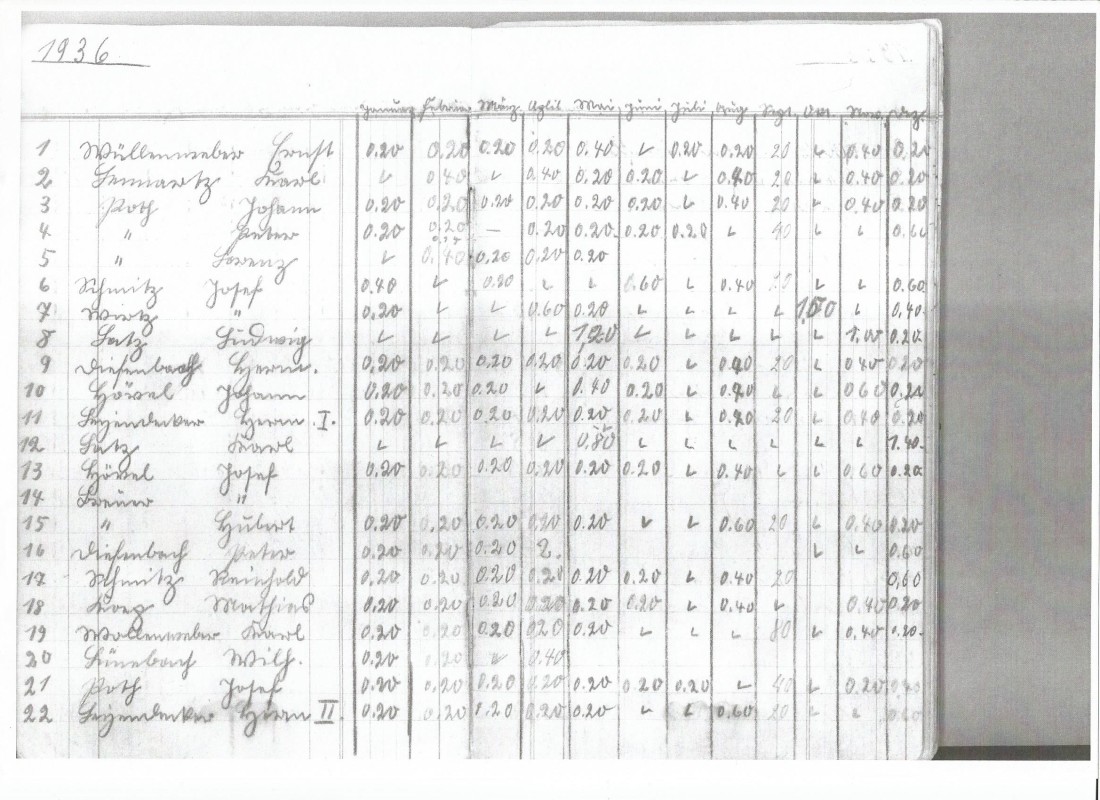 1936
Januar Februar März April Mai Juni Juli Aug Sept. Okt. Nov. Dez.
1 Wüllenweber Ernst 0.20 0.20 0.20 0.20 0.40 ˅ 0.20 0.20 20 ˅ 0.40 0.20
2 Lennartz Karl ˅ 0.40 ˅ 0.40 0.20 0.20 ˅ 0.40 20 ˅ 0.40 0.20
3 Poth Johann 0.20 0.20 0.20 0.20 0.20 0.20 ˅ 0.40 20 ˅ 0.40 0.20
4 " Peter 0.20 0.20 — 0.20 0.20 0.20 0.20 ˅ 40 ˅ ˅ 0.60
5 " Lorenz ˅ 0.40 0.20 0.20 0.20
6 Schmitz Josef 0.40 ˅ 0.20 ˅ ˅ 0.60 ˅ 0.40 20 ˅ ˅ 0.60
7 Wirtz " 0.20 ˅ ˅ 0.60 0.20 ˅ ˅ ˅ ˅ 1.00 ˅ 0.40
8 Latz Ludwig ˅ ˅ ˅ ˅ 1,20 ˅ ˅ ˅ ˅ ˅ 1.00 0.20
9 Diefenbach Herm. 0.20 0.20 0.20 0.20 0.20 0.20 ˅ 0.40 20 ˅ 0.40 0.20
10 Hövel Johann 0.20 0.20 0.20 ˅ 0.40 0.20 ˅ 0.40 ˅ ˅ 0.60 0.20
11 Leyendecker Herm. I. 0.20 0.20 0.20 0.20 0.20 0.20 ˅ 0.40 20 ˅ 0.40 0.20
12 Latz Karl ˅ ˅ ˅ ˅ 0.80 ˅ ˅ ˅ ˅ ˅ ˅ 1.40
13 Hövel Josef 0.20 0.20 0.20 0.20 0.20 0.20 ˅ 0.40 ˅ ˅ 0.60 0.20
14 Breuer "
15 " Hubert 0.20 0.20 0.20 0.20 0.20 ˅ ˅ 0.60 20 ˅ 0.40 0.20
16 Diefenbach Peter 0.20 0.20 0.20 ˅ ˅ 0.60
17 Schmitz Reinhold 0.20 0.20 0.20 0.20 0.20 0.20 ˅ 0.40 20 0.60
18 Mathias 0.20 0.20 0.20 0.20 0.20 0.20 ˅ 0.40 ˅ 0.40 0.20
19 Wollenweber Karl 0.20 0.20 0.20 0.20 0.20 ˅ ˅ ˅ 80 ˅ 0.40 0.20
20 Lünebach Wilh. 0.20 0.20 ˅ 0.40
21 Poth Josef 0.20 0.20 0.20 0.20 0.20 0.20 0.20 ˅ 40 ˅ 0.20
22 Leyendecker Herm II. 0.20 0.20 0.20 0.20 0.20 ˅ ˅ 0.60 20 ˅ ˅ 0.60